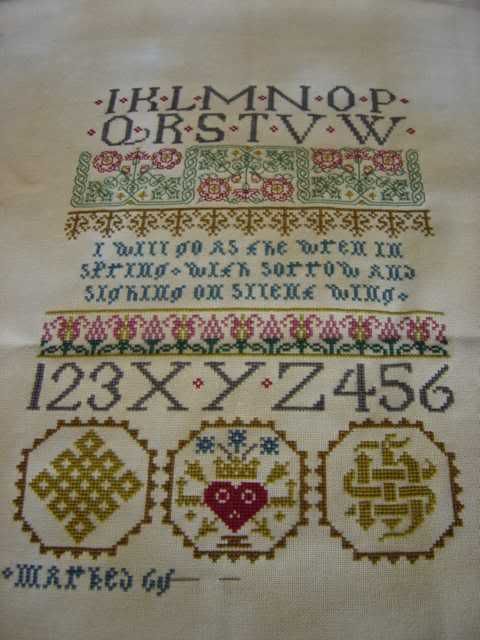 I·K·L·M·N·O·P
Q·R·S·T·V·W·
I will go as the wren in
spring· with sorrow and
sighing on silent wing·
123X·Y·Z456
·Marked by